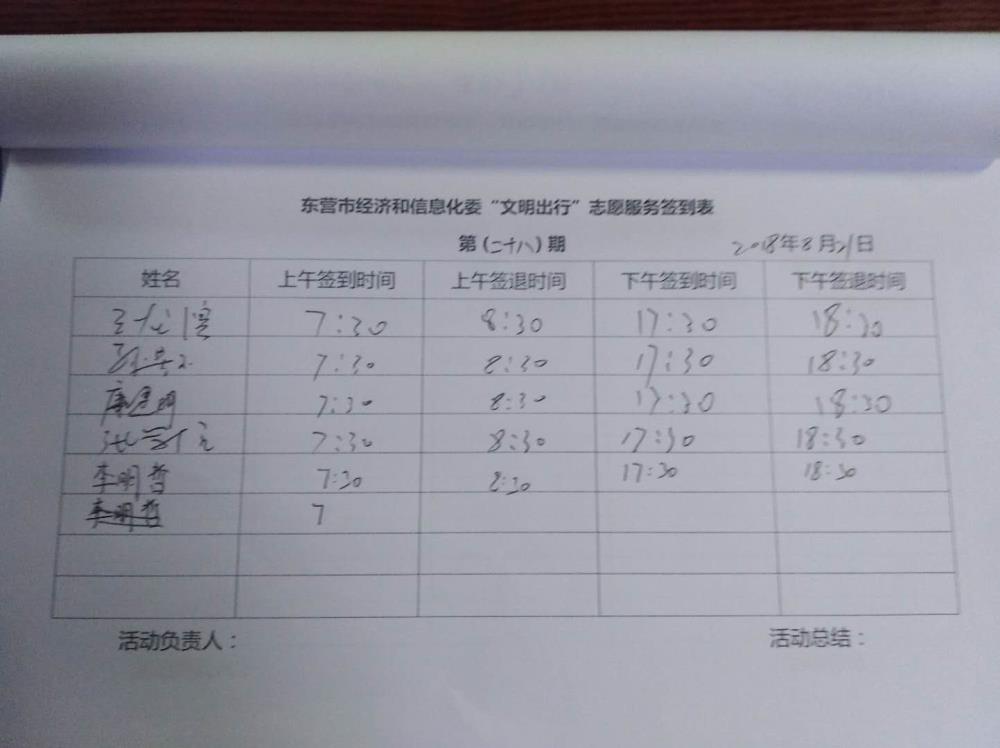 东营市经济和信息化委“文明出行”志愿服务签到表
第(二十八)期 2018年8月21日
姓名 上午签到时间 上午签退时间 下午签到时间 下午签退时间
7:30 8:30 17:30 18:30
7:30 8:30 17:30 18:30
7:30 8:30 17:30 18:30
7:30 8:30 17:30 18:30
李明哲 7:30 8:30 17:30 18:30
李明哲 7
活动负责人： 活动总结：